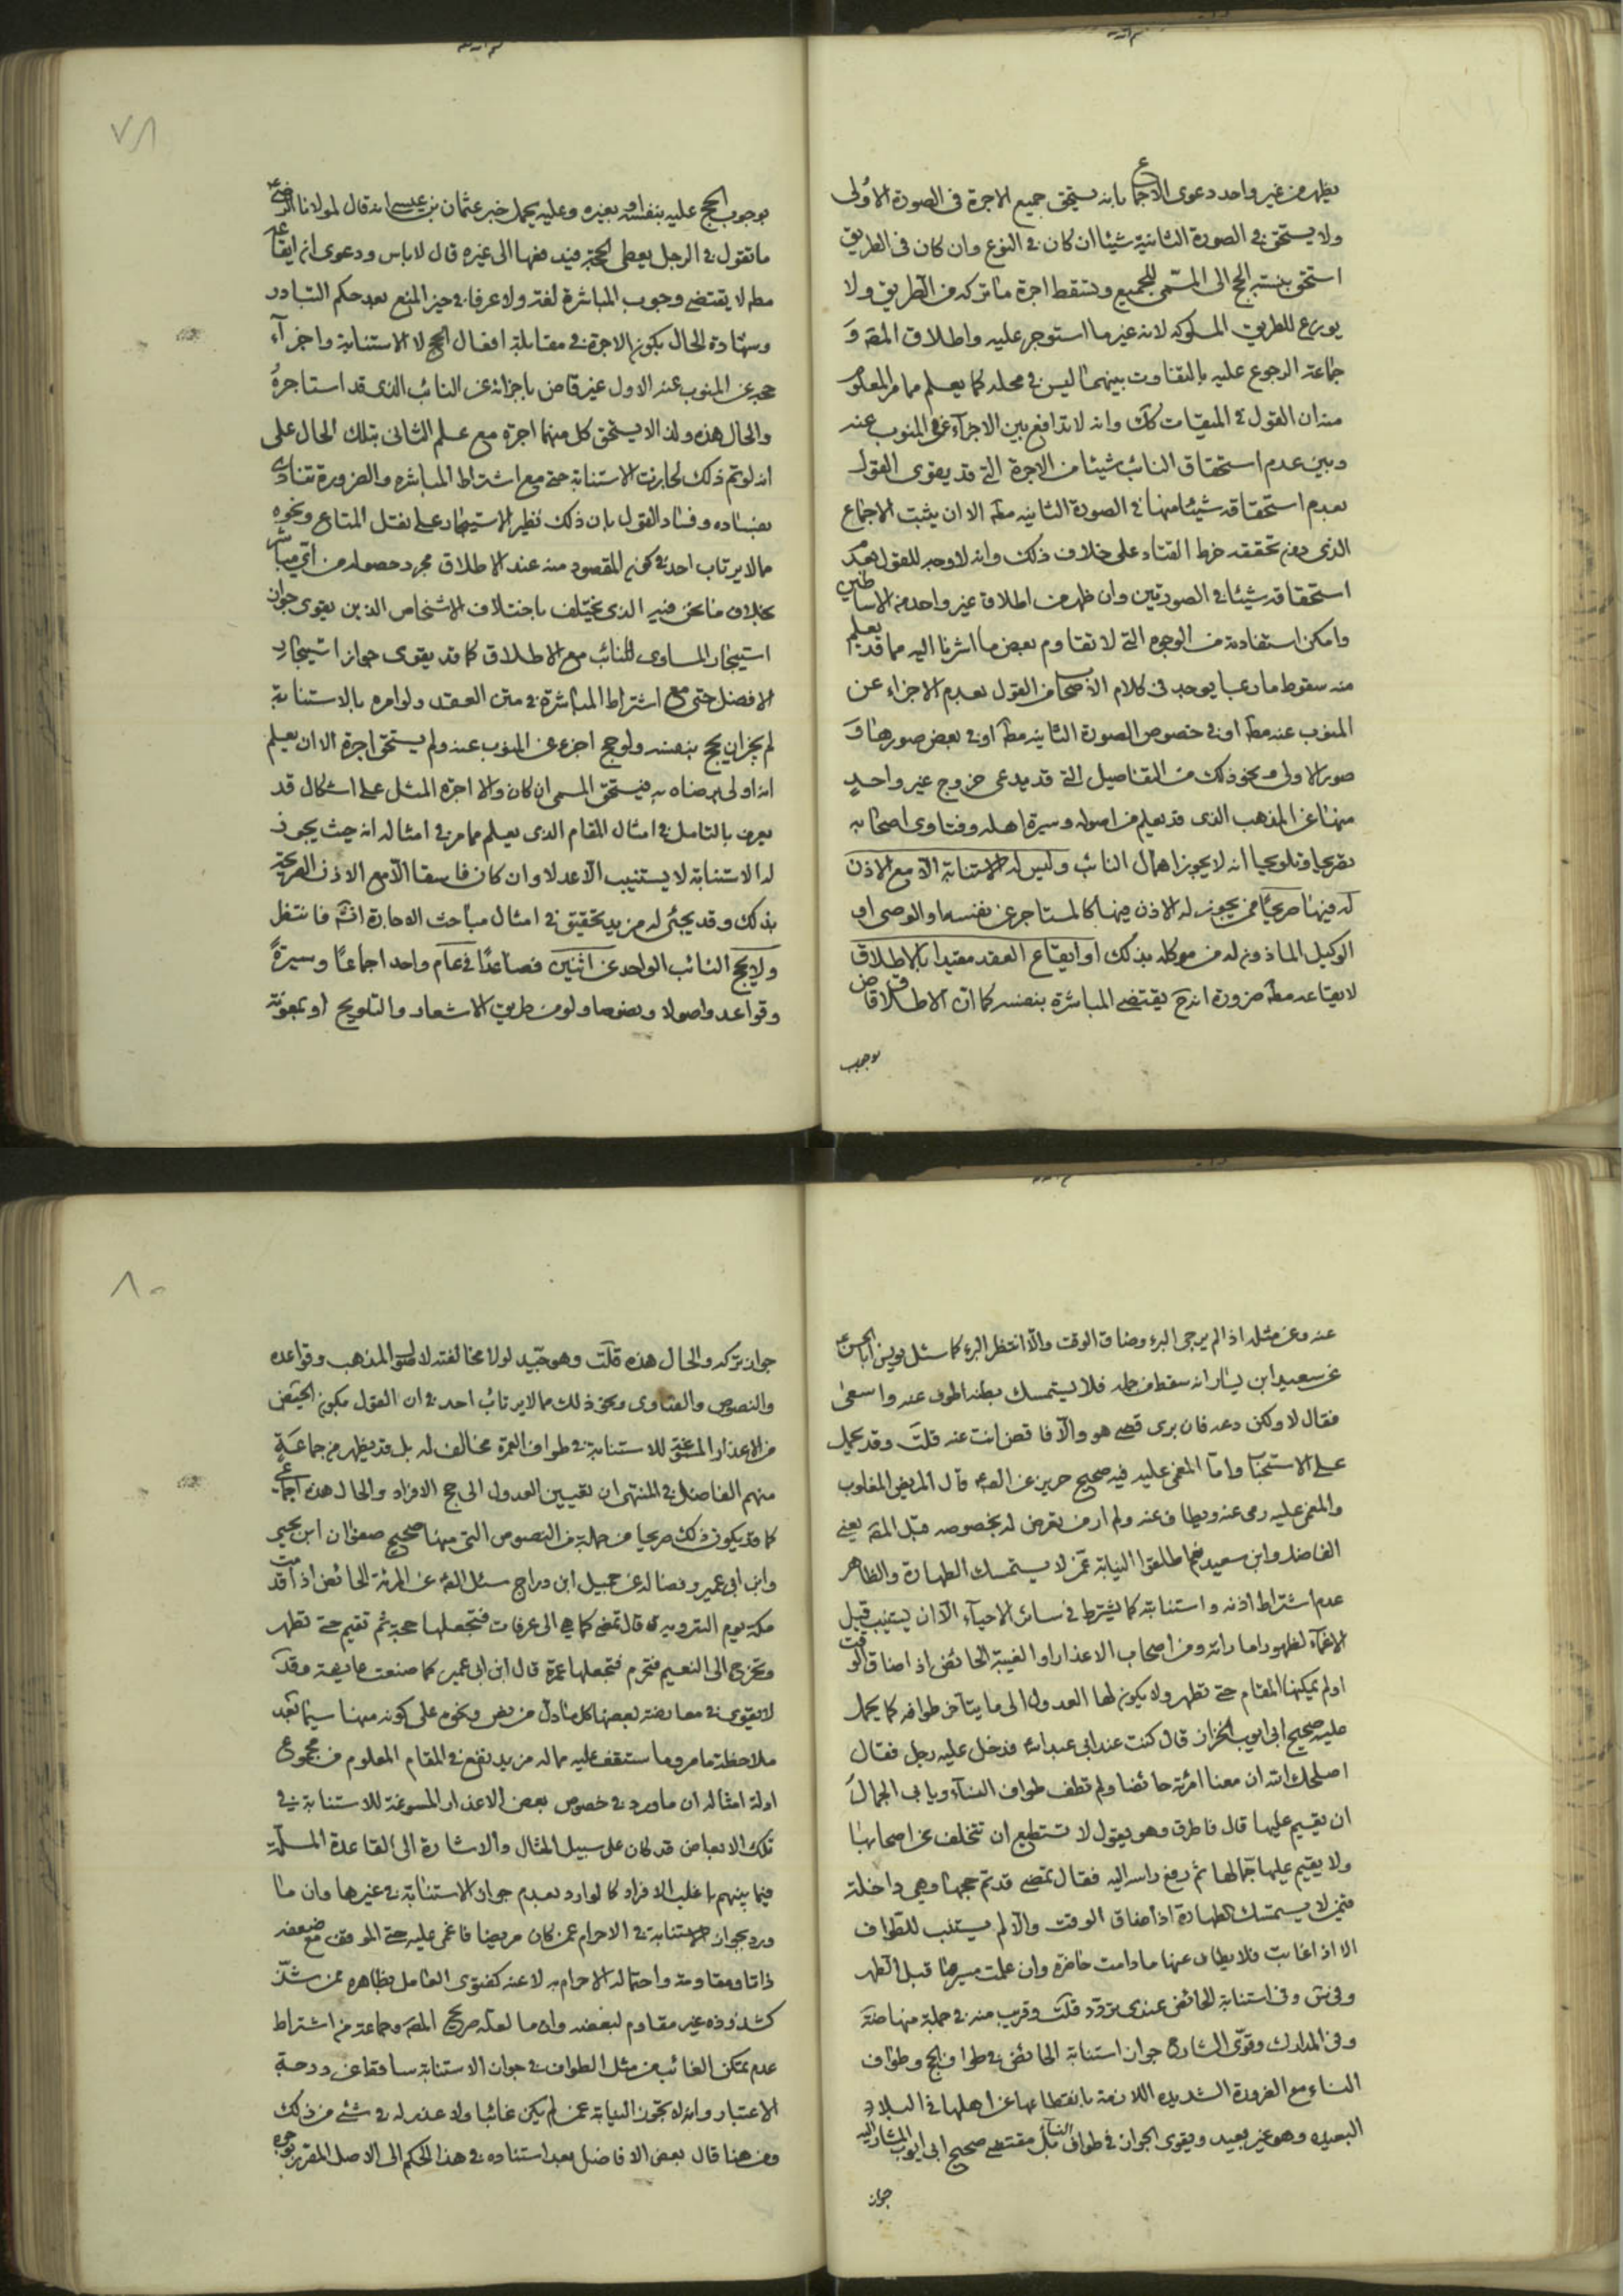 يظهر من غير واحد دعوى الاجماع بانه يستحق جميع الاجرة فى الصورة الاولى
ولا يستحق فى الصورة الثانية شيئا ان كان فى النوع وان كان فى الطريق
استحق بنسبة الحج الى المسمى للجميع ويسقط اجرة ما تركه من الطريق ولا
يوزع للطريق المسلوكه لانه غير ما استوجر عليه واطلاق المصه و
جماعة الرجوع عليه بالتفاوت بينهما ليس فى محله كما يعلم مما مر المعلوم
منه ان القول فى الميقات كك وانه لا تدافع بين الاجزآء عن المنوب عنه
وبين عدم استحقاق النائب شيئا من الاجرة التى قد يقوى القول
بعدم استحقاقه شيئا منها فى الصورة الثانيه مطه الا ان يثبت الاجماع
الذى دون تحققه خرط القتاد على خلاف ذلك وانه لا وجه للقول بعدم
استحقاقه شيئا فى الصورتين وان ظهر من اطلاق غير واحد من الاساطين
وامكن استفادته من الوجوه التى لا تقاوم بعض ما اشرنا اليه مما قد يعلم
منه سقوط ما ربما يوجد فى كلام الاصحاب من القول بعدم الاجزاء عن
المنوب عنه مطه او فى خصوص الصورة الثانيه مطه او فى بعض صورها و
صور الاولى ونحو ذلك من التفاصيل التى قد يدعى خروج غير واحد
منها عن المذهب الذى قد يعلم من اصوله وسيرة اهله وفتاوى اصحابه
تصريحا وتلويحا انه لا يجوز اهمال النائب وليس له الاستنابة الا مع الاذن
له فيها صريحًا ممن يجوز له الاذن فيها كالمستاجر عن نفسه او الوصى او
الوكيل الماذون له من موكله بذلك او ايقاع العقد مقيدا بالاطلاق
لا ايقاعه مطه ضرورة انه ح يقتضى المباشرة بنفسه كما ان الاطلاق قاض
بوجوب
٧٨
بوجوب الحج عليه بنفسه او بغيره وعليه يحمل خبر عثمان بن عيسى انه قال لمولانا الرضا ع
ما تقول فى الرجل يعطى الحجة فيدفعها الى غيره قال لا باس ودعوى ان ايقاعه
مطه لا يقتضى وجوب المباشرة لغة ولا عرفا فى حيز المنع بعد حكم التبادر
وشهادة الحال بكون الاجرة فى مقابلة افعال الحج لا الاستنابة واجزآء
حجه عن المنوب عنه الاول غير قاض باجزائه عن النائب الذى قد استاجرهُ
والحال هذه ولذا لا يستحق كل منهما اجرة مع علم الثانى بتلك الحال على
انه لو تم ذلك لجازت الاستنابة حتى مع اشتراط المباشره والضرورة تنادى
بفساده وفساد القول بان ذلك نظير الاستيجار على نقل المتاع ونحوه
مما لا يرتاب احد فى كون المقصود منه عند الاطلاق مجرد حصوله من اى مباشر
بخلاف ما نحن فيه الذى يختلف باختلاف الاشخاص الذين يقوى جواز
استيجار المساوى للنائب مع الاطلاق كما قد يقوى جواز استيجار
الافضل حتى مع اشتراط المباشرة فى متن العقد ولو امره بالاستنابة
لم يجز ان يحج بنفسه ولو حج اجزء عن المنوب عنه ولم يستحق اجرة الا ان يعلم
انه اولى برضاه به فيستحق المسمى ان كان والا اجرة المثل على اشكال قد
يعرف بالتامل فى امثال المقام الذى يعلم مما مر فى امثاله انه حيث يجوز
له الاستنابة لا يستنيب الا عدلا وان كان فاسقا الا مع الاذن الصريحة
بذلك وقد يجئ له مزيد تحقيق فى امثال مباحث الاجارة انشه فانتظر
ولا يحج النائب الواحد عن اثنين فصاعدًا فى عام واحد اجماعًا وسيرةً
وقواعد واصولا ونصوصا ولو من طريق الاشعار والتلويح او بمعونة
عنه وعن مثله اذا لم يرجى البرء وضاق الوقت والا انتظر البرء كما سئل يونس ابا الحسن ع
عن سعيد ابن يسار انه سقط من جمله فلا يستمسك بطنه اطوف عنه واسعى
فقال لا ولكن دعه فان برى قضى هو والا فاقض انت عنه قلت وقد يحمل
على الاستحباب واما المغمى عليه فيه صحيح حريز عن الصه قال المريض المغلوب
والمغمى عليه يرمى عنه ويطاف عنه ولم ار من تعرض له بخصوصه قبل المصه يعنى
الفاضل وابن سعيد نعم اطلقوا النيابة عمن لا يستمسك الطهارة والظاهر
عدم اشتراط اذنه واستنابته كما يشترط فى سائر الاحيآء الا ان يستنيب قبل
الاغمآء لظهور اماراته ومن اصحاب الاعذار او الغيبة الحائض اذا ضاق الوقت
او لم يمكنها المقام حتى تطهر ولا يكون لها العدول الى ما يتآخر طوافه كما يحمل
عليه صحيح ابى ايوب الخزاز قال كنت عند ابى عبد الله فدخل عليه رجل فقال
اصلحك الله ان معنا امرئة حائضا ولم تطف طواف النسآء ويابى الجمال
ان يقيم عليها قال فاطرق وهو يقول لا تستطيع ان تتخلف عن اصحابها
ولا يقيم عليها جمالها ثم رفع راسه اليه فقال تمضى قد تم حجها وهى داخلة
فمن لا يستمسك الطهارة اذا ضاق الوقت والا لم يستنب للطواف
الا اذا غابت فلا يطاف عنها ما دامت حاضرة وان علمت مسيرها قبل الطهر
وفى س وفى استنابة الحائض عندى تردد قلت وقريب منه فى جملة منها ضه
وفى المدارك وقوّى الشارح جواز استنابة الحائض فى طواف الحج وطواف
النساء مع الضرورة الشديده اللازمة بانقطاعها عن اهلها فى البلاد
البعيده وهو غير بعيد ويقوى الجواز فى طواف النسآء بل مقتضى صحيح ابى ايوب المشار اليه
جواز
٨٠
جواز تركه والحال هذه قلت وهو جيد لولا مخالفته لاصول المذهب وقواعده
والنصوص والفتاوى ونحو ذلك مما لا يرتاب احد فى ان القول بكون الحيض
من الاعذار المسوغة للاستنابة فى طواف العمرة مخالف له بل قد يظهر من جماعة
منهم الفاضل فى المنتهى ان تعيين العدول الى حج الافراد والحال هذه اجماعى
كما قد يكون ذلك صريحا من جملة من النصوص التى منها صحيح صفوان ابن يحيى
وابن ابى عمير وفضاله عن جميل ابن دراج سئل الصه عن المرئة الحائض اذا قدمت
مكة يوم التروية قال تمضى كما هى الى عرفات فتجعلها حجة ثم تقيم حتى تطهر
وتخرج الى التنعيم فتحرم فتجعلها عمرة قال ابن ابى عمير كما صنعت عايشة وقد
لا يقوى فى معارضته لبعضها كل ما دل من نص ونحوه على كونه منها سيما بعد
ملاحظة ما مر وما ستقف عليه مما له مزيد نفع فى المقام المعلوم من مجموع
ادلة امثاله ان ما ورد فى خصوص بعض الاعذار المسوغة للاستنابة فى
تلك الابعاض قد كان على سبيل المثال والاشارة الى القاعدة المسلّمة
فيما بينهم باغلب الافراد كالوارد بعدم جواز الاستنابة فى غيرها وان ما
ورد بجواز الاستنابة فى الاحرام عمن كان مريضا فاغمى عليه حتى الموقف مع ضعفه
ذاتا ومقاومة واحتماله الاحرام به لا عنه كفتوى العامل بظاهره ممن شذّ
كشذوذه غير مقاوم لبعضه وان ما لعله صريح المصه وجماعة من اشتراط
عدم تمكن الغائب من مثل الطواف فى جواز الاستنابة ساقط عن درجة
الاعتبار وانه لا تجوز النيابة عمن لم يكن غائبا ولا عذر له فى شئ من ذلك
ومن هنا قال بعض الافاضل بعد استناده فى هذا الحكم الى الاصل المقرر بوجوه